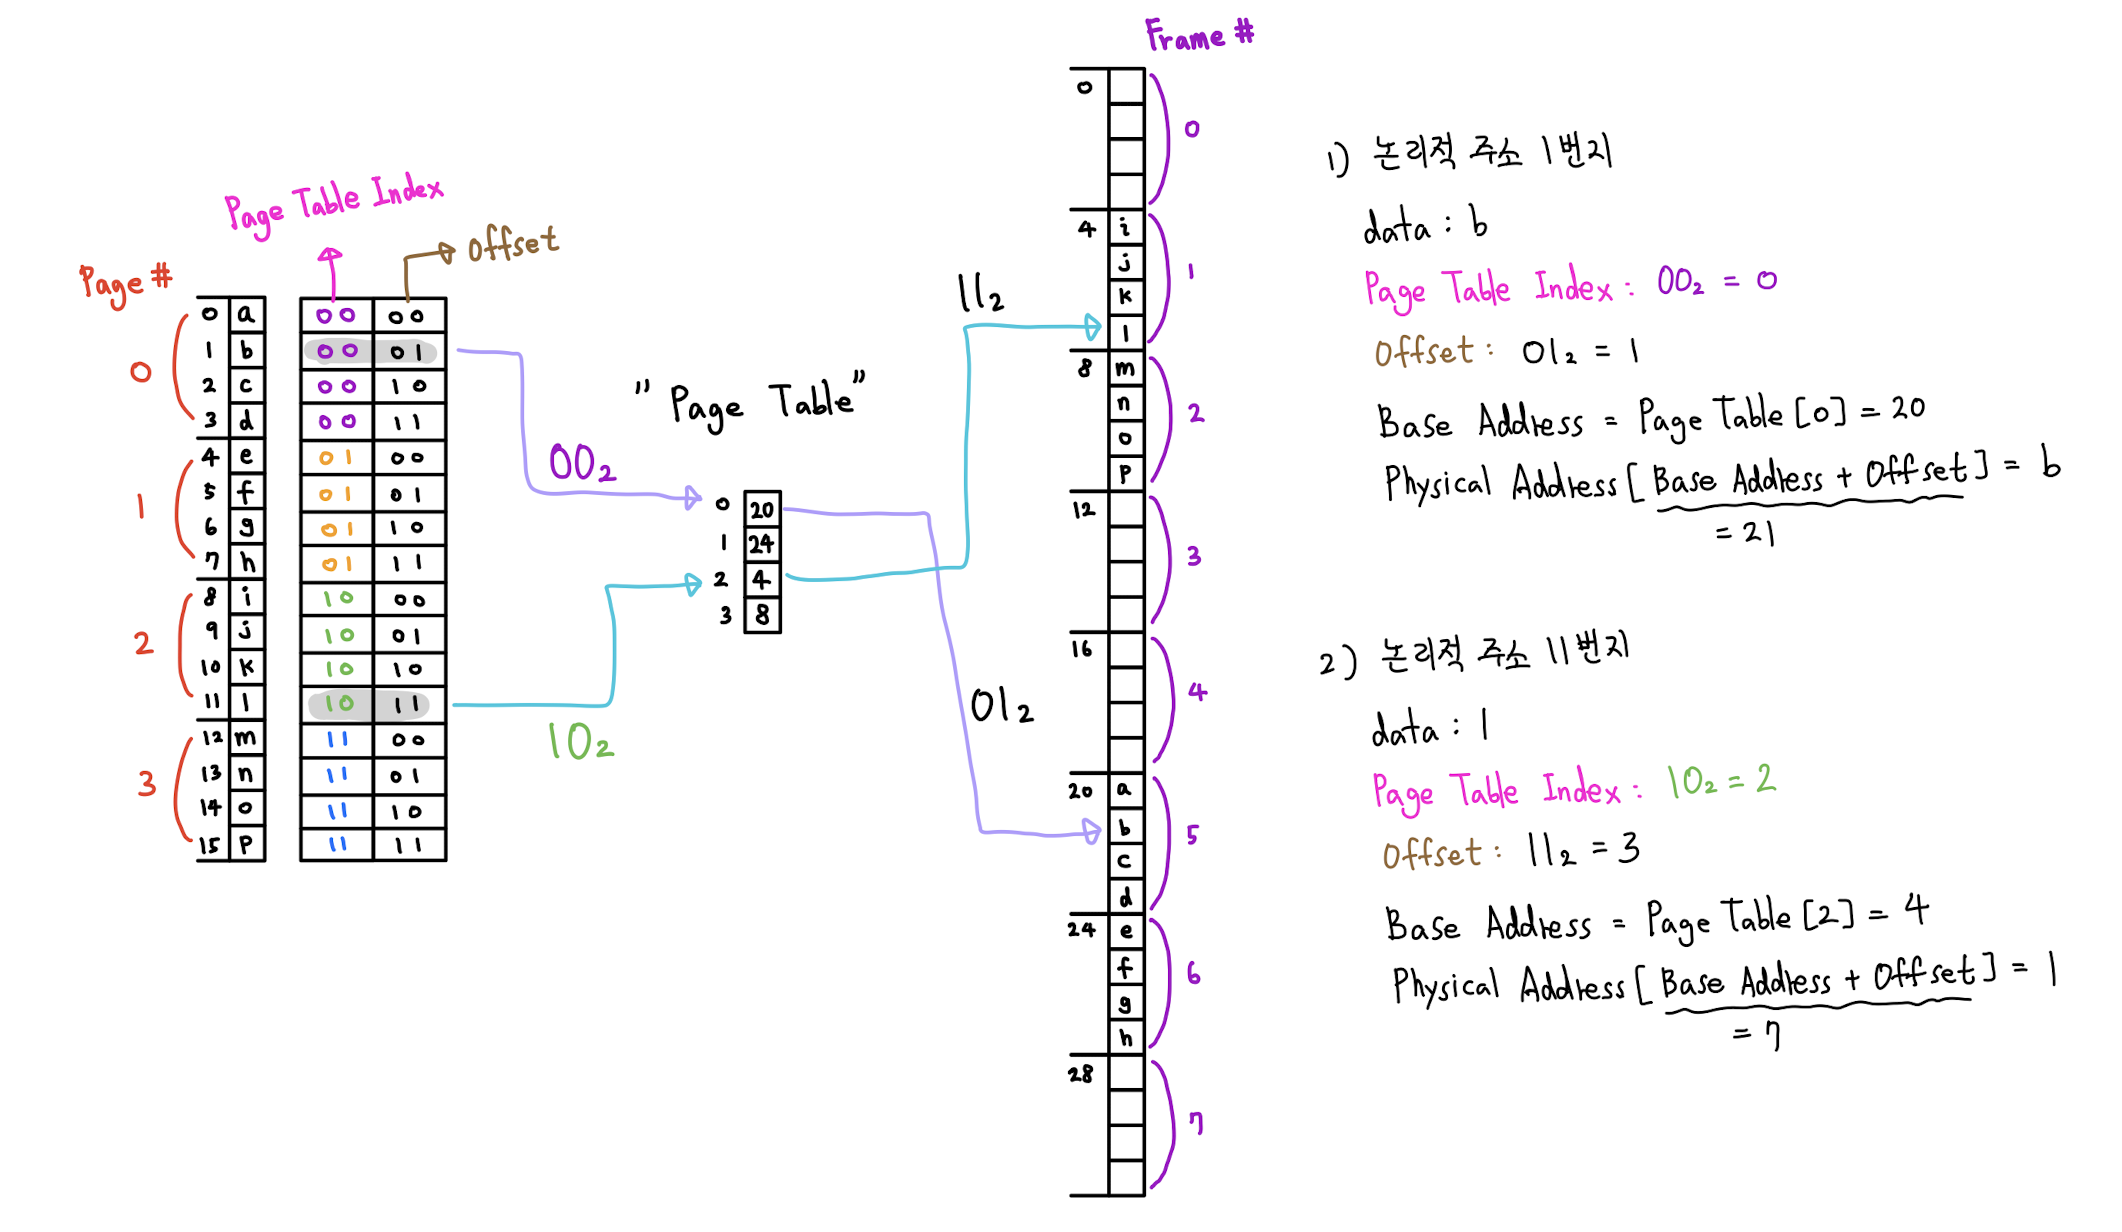 Page #
Page Table Index
offset
0 a 00 00
1 b 00 01
2 c 00 10
3 d 00 11
4 e 01 00
5 f 01 01
6 g 01 10
7 h 01 11
8 i 10 00
9 j 10 01
10 k 10 10
11 l 10 11
12 m 11 00
13 n 11 01
14 o 11 10
15 p 11 11
0
1
2
3
00₂
10₂
" Page Table"
0 20
1 24
2 4
3 8
11₂
01₂
Frame #
0
0
4 i
j
k
l
1
8 m
n
o
p
2
12
3
16
4
20 a
b
c
d
5
24 e
f
g
h
6
28
7
1) 논리적 주소 1번지
data : b
Page Table Index : 00₂ = 0
Offset : 01₂ = 1
Base Address = Page Table [0] = 20
Physical Address [ Base Address + Offset ] = b
= 21
2) 논리적 주소 11번지
data : l
Page Table Index : 10₂ = 2
Offset : 11₂ = 3
Base Address = Page Table [2] = 4
Physical Address [ Base Address + Offset ] = l
= 7